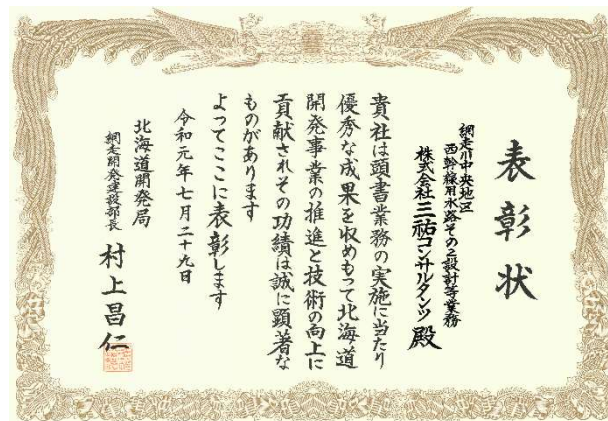 表彰状
網走川中央地区
西幹線用水路その2設計等業務
株式会社三祐コンサルタンツ殿
貴社は頭書業務の実施に当たり
優秀な成果を収めもって北海道
開発事業の推進と技術の向上に
貢献されその功績は誠に顕著な
ものがあります
よってここに表彰します
令和元年七月二十九日
北海道開発局
網走開発建設部長
村上昌仁